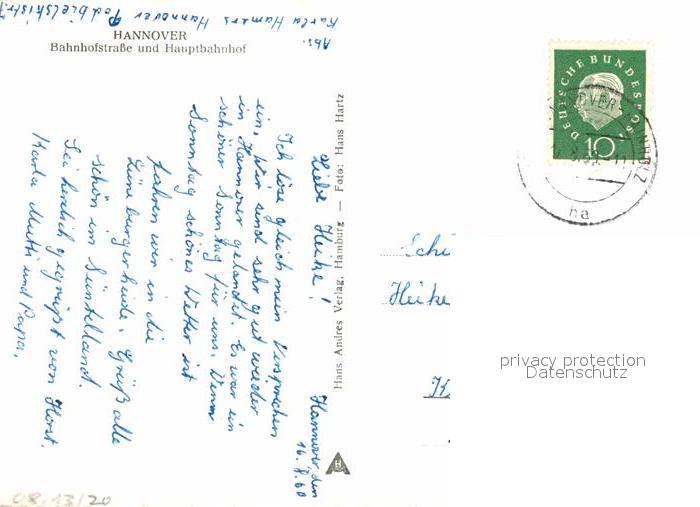 Abs. Karla Hamers Hannover Podbielskistr. 7
HANNOVER
Bahnhofstraße und Hauptbahnhof
Hannover, den
16. 8. 60
Liebe Heike!
Ich löse gleich mein Versprechen
ein. Wir sind sehr gut wieder
in Hannover gelandet. Es war ein
schöner Sonntag für uns. Wenn
Sonntag schönes Wetter ist
fahren wir in die
Lüneburgerheide. Grüß alle
schön im Süntelland.
Sei herzlich gegrüßt von Horst,
Karla Mutti und Papa.
Hans Andres Verlag, Hamburg — Foto: Hans Hartz
DEUTSCHE BUNDESPOST
10
ha
Schü
Heike
privacy protection
Datenschutz
08,13/20